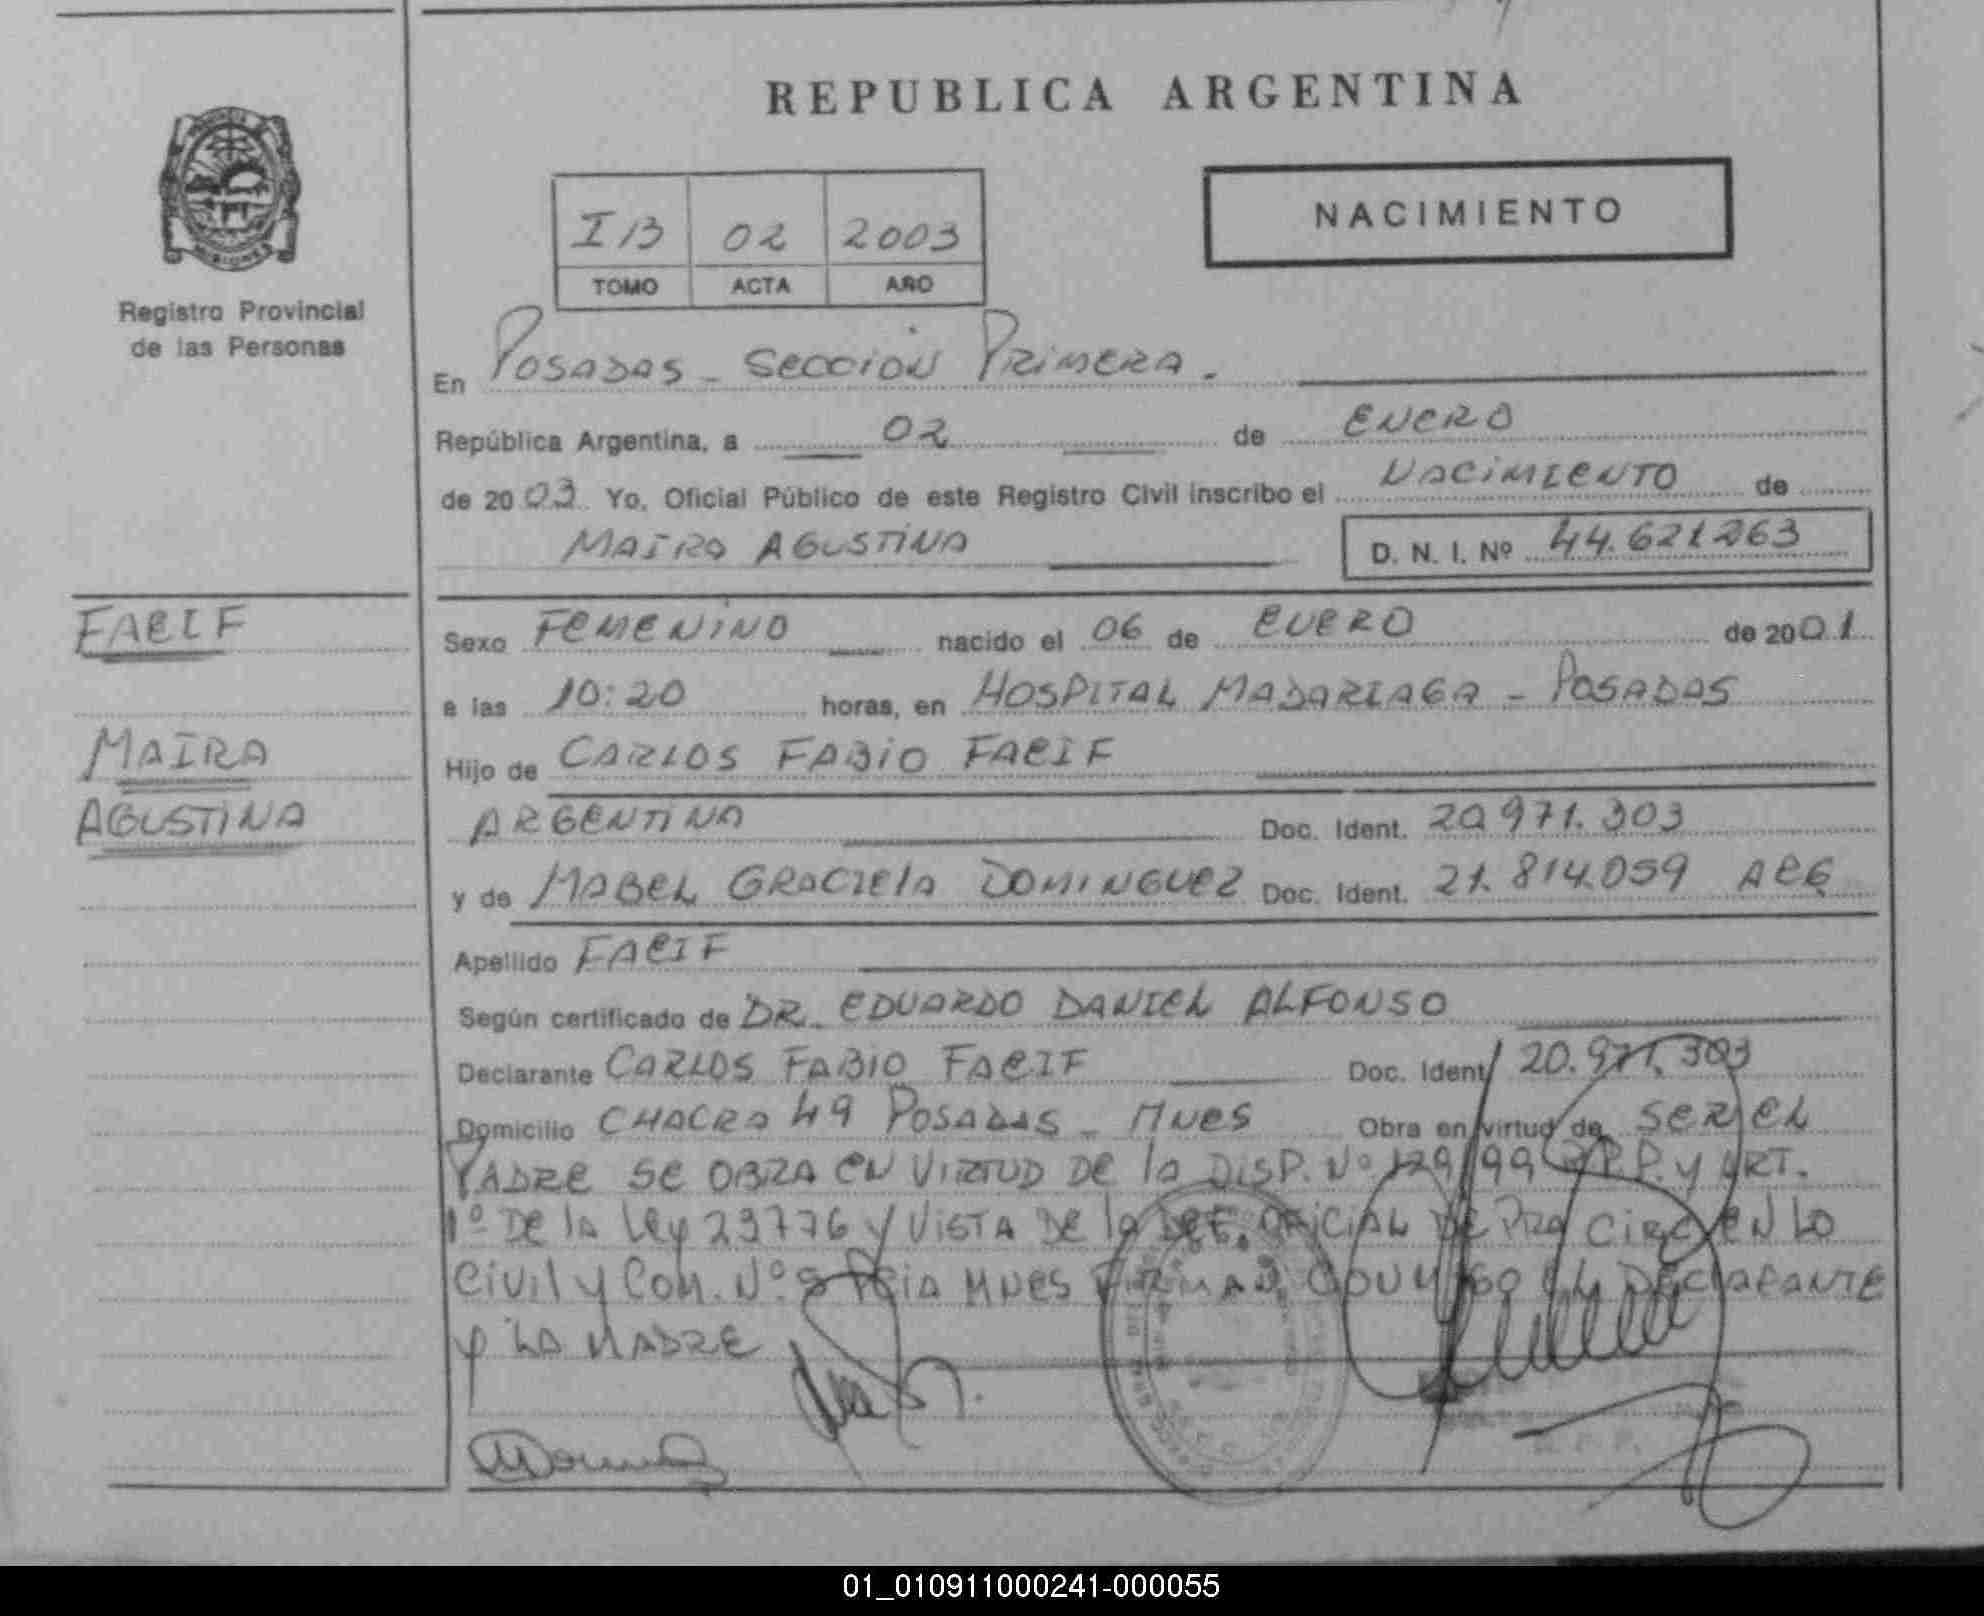 REPUBLICA ARGENTINA
NACIMIENTO
I B 02 2003
TOMO ACTA AÑO
Registro Provincial
de las Personas
En POSADAS - SECCION PRIMERA.
República Argentina, a 02 de ENERO
de 2003. Yo, Oficial Público de este Registro Civil inscribo el NACIMIENTO de
MAIRA AGUSTINA D. N. I. Nº 44.621263
FACIF
MAIRA
AGUSTINA
Sexo FEMENINO nacido el 06 de ENERO de 2001.
a las 10:20 horas, en HOSPITAL MADARIAGA - POSADAS
Hijo de CARLOS FABIO FACIF
ARGENTINA Doc. Ident. 20.971.303
y de MABEL GRACIELA DOMINGUEZ Doc. Ident. 21.814.059 ARG
Apellido FACIF
Según certificado de DR. EDUARDO DANIEL ALFONSO
Declarante CARLOS FABIO FACIF Doc. Ident 20.971.303
Domicilio CHACRA 49 POSADAS - MNES Obra en virtud de SER EL
PADRE SE OBRA EN VIRTUD DE LA DISP. Nº 129/99 R.P.P. Y ART.
1º DE LA LEY 23776 Y VISTA DE LA DEF. OFICIAL DE CIRC EN LO
CIVIL Y COM. Nº PCIA MNES FIRMAN CONMIGO EL DECLARANTE
Y LA MADRE
R.P.P.
01_010911000241-000055